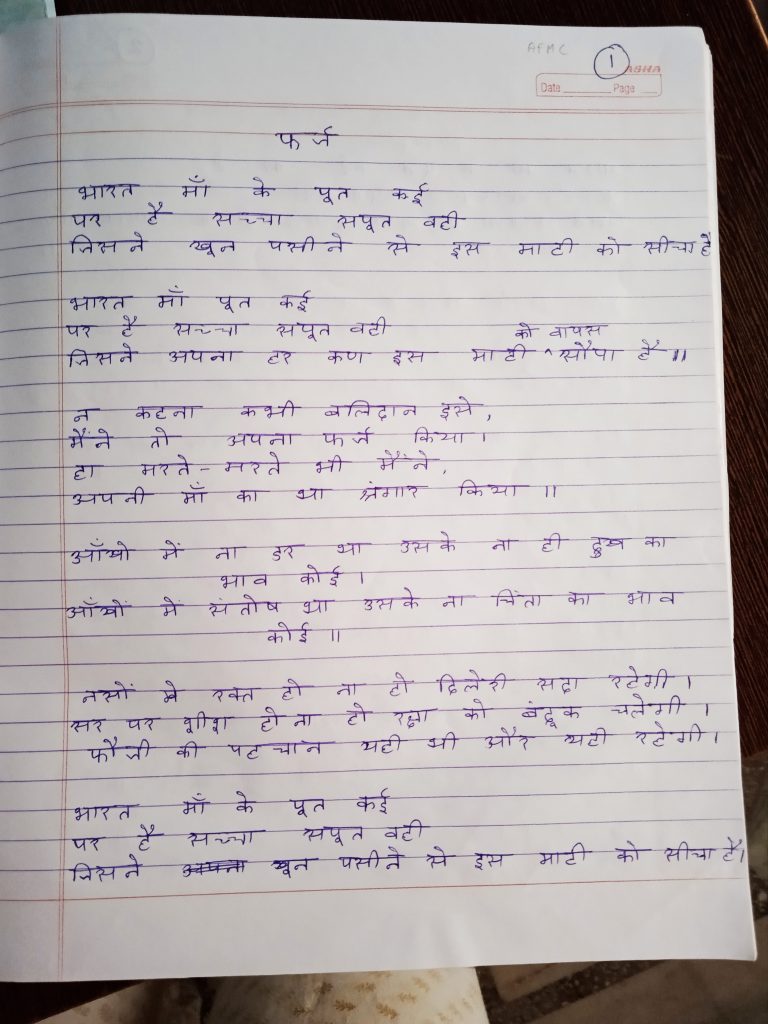 AFMC
1
ASHA
Date Page
फर्ज
भारत माँ के पूत कई
पर है सच्चा सपूत वही
जिसने खून पसीने से इस माटी को सीचा है
भारत माँ पूत कई
पर है सच्चा सपूत वही
जिसने अपना हर कण इस माटी ^को वापस सौपा है ॥
न कहना कभी बलिदान इसे,
मैंने तो अपना फर्ज किया।
हा मरते-मरते भी मैंने,
अपनी माँ का था श्रंगार किया ॥
आँखो में ना डर था उसके ना ही दुख का
भाव कोई।
आँखों में संतोष था उसके ना चिंता का भाव
कोई ॥
नसों मे रक्त हो ना हो दिलेरी सदा रहेगी।
सर पर शीश हो ना हो रक्षा को बंदूक चलेगी।
फौजी की पहचान यही थी और यही रहेगी।
भारत माँ के पूत कई
पर है सच्चा सपूत वही
जिसने अपना खून पसीने से इस माटी को सीचा है।